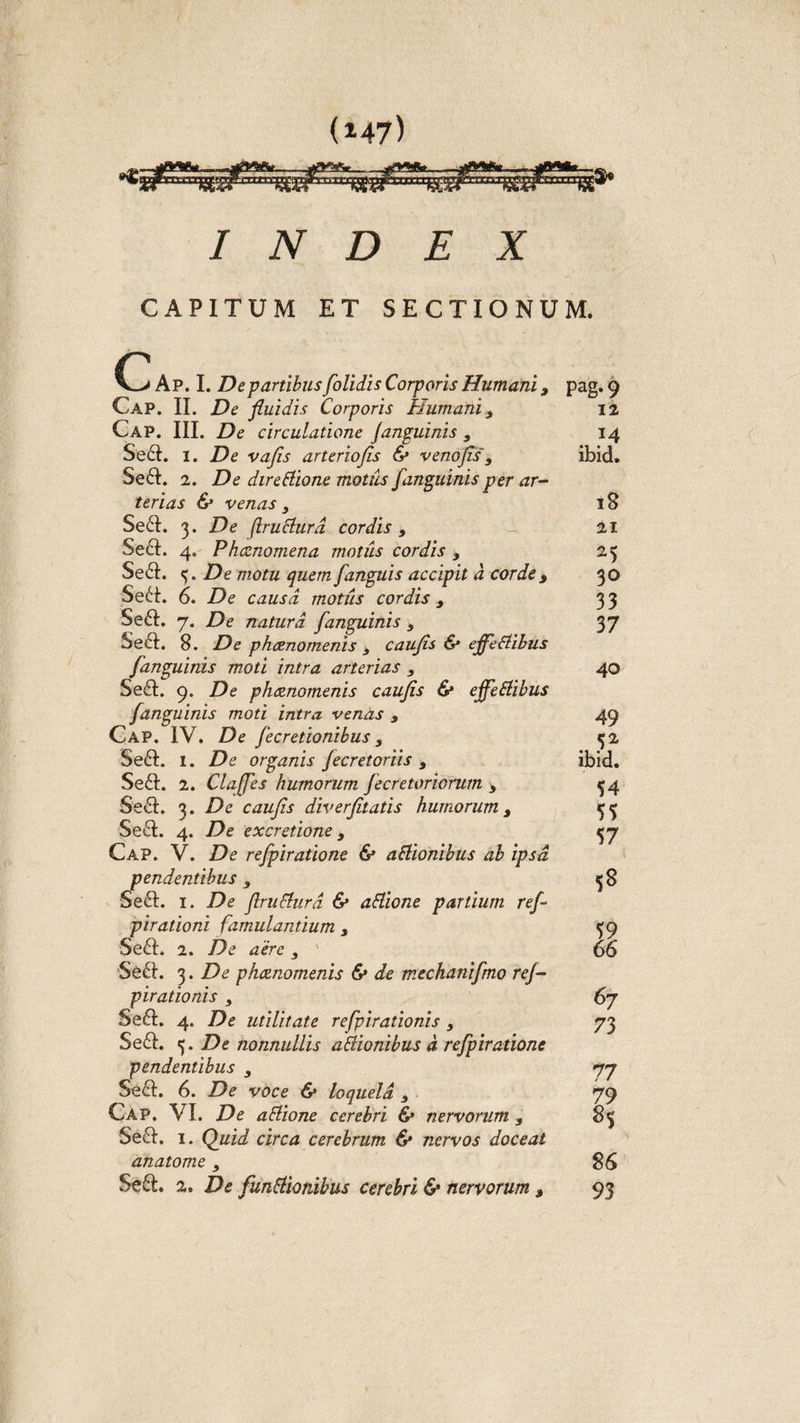 (147)
INDEX
CAPITUM ET SECTIONUM.
CAP. I. De partibus ſolidis Corporis Humani, pag. 9
CAP. II. De fluidis Corporis Humani, 12
CAP. III. De circulatione ſanguinis, 14
Sect. 1. De vaſis arterioſis & venoſis, ibid.
Sect. 2. De directione motûs ſanguinis per ar-
terias & venas, 18
Sect. 3. De ſtructurâ cordis, 21
Sect. 4. Phœnomena motûs cordis, 25
Sect. 5. De motu quem ſanguis accipit à corde, 30
Sect. 6. De causâ motûs cordis, 33
Sect. 7. De naturâ ſanguinis, 37
Sect. 8. De phœnomenis, cauſis & effectibus
ſanguinis moti intra arterias, 40
Sect. 9. De phœnomenis cauſis & effectibus
ſanguinis moti intra venas, 49
CAP. IV. De ſecretionibus, 52
Sect. 1. De organis ſecretoriis, ibid.
Sect. 2. Claſſes humorum ſecretoriorum, 54
Sect. 3. De cauſis diverſitatis humorum, 55
Sect. 4. De excretione, 57
CAP. V. De reſpiratione & actionibus ab ipsâ
pendentibus, 58
Sect. 1. De ſtructurâ & actione partium reſ-
pirationi famulantium, 59
Sect. 2. De aëre, 66
Sect. 3. De phœnomenis & de mechaniſmo reſ-
pirationis, 67
Sect. 4. De utilitate reſpirationis, 73
Sect. 5. De nonnullis actionibus à reſpiratione
pendentibus, 77
Sect. 6. De voce & loquelâ, 79
CAP. VI. De actione cerebri & nervorum, 85
Sect. 1. Quid circa cerebrum & nervos doceat
anatome, 86
Sect. 2. De functionibus cerebri & nervorum, 93